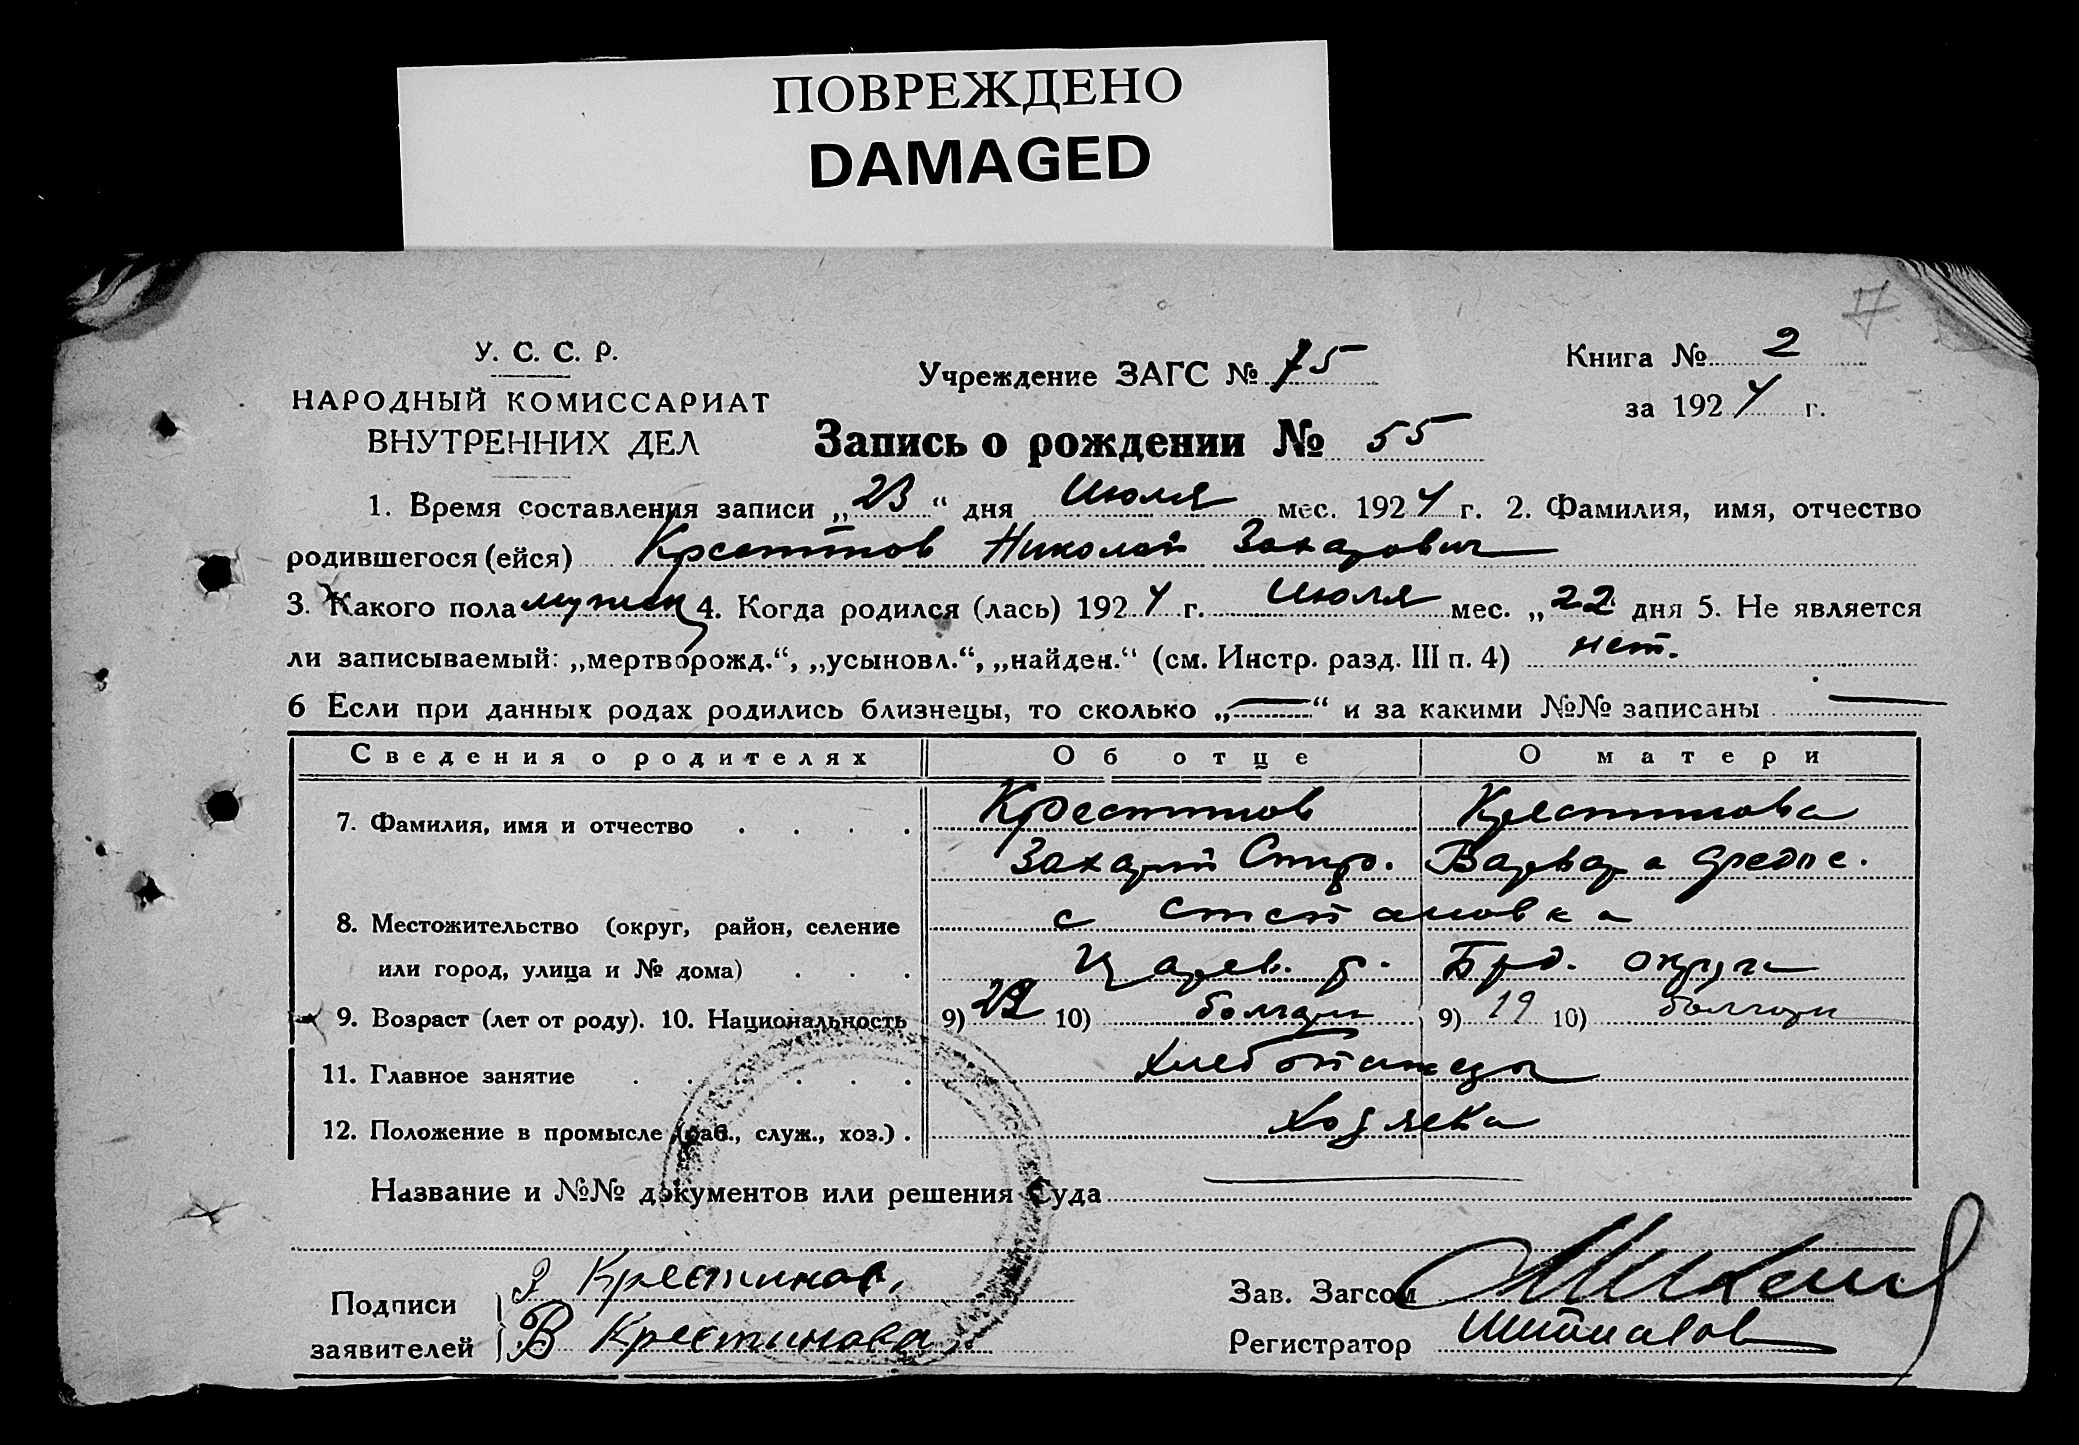 ПОВРЕЖДЕНО
DAMAGED
7
У. С. С. Р.
НАРОДНЫЙ КОМИССАРИАТ
ВНУТРЕННИХ ДЕЛ
Учреждение ЗАГС № 75
Книга № 2
за 1924 г.
Запись о рождении № 55
1. Время составления записи „23“ дня Июля мес. 1924 г. 2. Фамилия, имя, отчество
родившегося (ейся) Крестинов Николай Захарович
3. Какого пола мужск 4. Когда родился (лась) 1924 г. Июля мес. „22 дня 5. Не является
ли записываемый: „мертворожд.“, „усыновл.“, „найден.“ (см. Инстр. разд. III п. 4) нет.
6 Если при данных родах родились близнецы, то сколько „—“ и за какими №№ записаны —
Сведения о родителях Об отце О матери
7. Фамилия, имя и отчество . . . . Крестинов Крестинова
Захарий Спир. Варвара
8. Местожительство (округ, район, селение с Степановка
или город, улица и № дома) . . . Царев. р. Брд. округа
9. Возраст (лет от роду). 10. Национальность 9) 10) болгары 9) 19 10) болгары
11. Главное занятие . . . . . Хлебопашецы
12. Положение в промысле (раб., служ., хоз.) . Хозяева
Название и №№ документов или решения Суда —
Подписи
заявителей
З Крестинов,
В Крестинова
Зав. Загсом
Регистратор